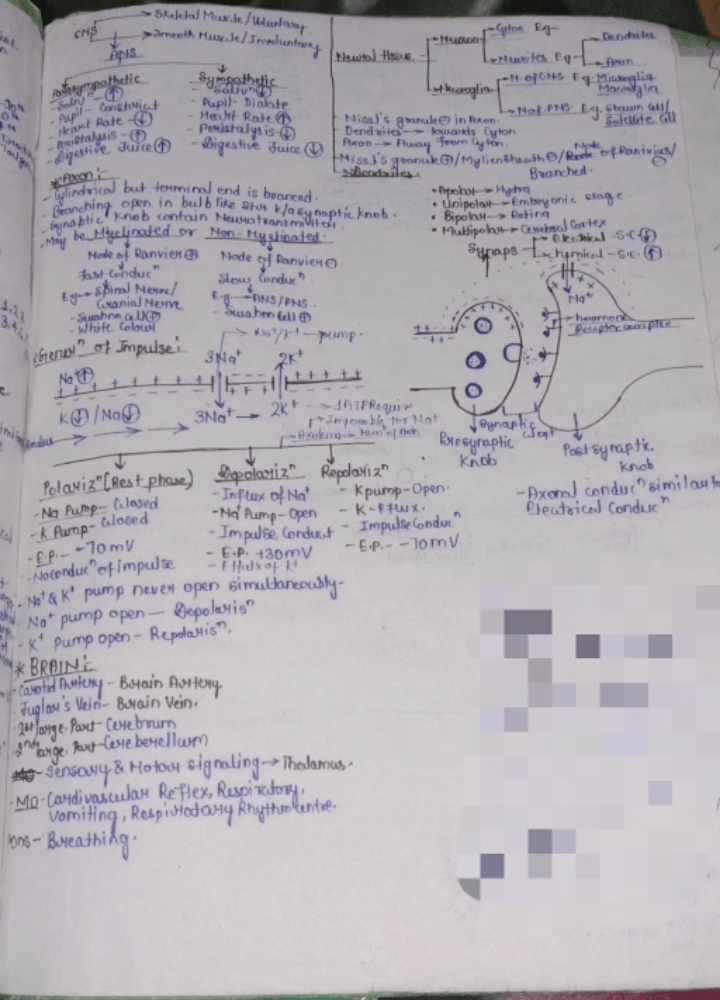 CNS → Skeletal Muscle/Voluntary
→ Smooth Muscle/Involuntary
ANS
Parasympathetic
- Salivⁿ ↑
- Pupil- Constrict
- Heart Rate - ↓
- Peristalysis - ↑
- Digestive Juice ↑
Sympathetic
- Salivⁿ ↓
- Pupil- Dialate
- Heart Rate ↑
- Peristalysis - ↓
- Digestive Juice ↓
Neural tissue
Neuron
Cyton Eg-
Neurites Eg
Dendrites
Axon
Neuroglia
N. of CNS Eg- Microglia
Macroglia
N of PNS- E.g.
Satellite Cell
- Nissl's granule ⊖ in Axon.
- Dendrites → towards Cyton
Axon → Away from Cyton.
- Nissl's granule ⊕/Myliensheath ⊖/Node of Ranivius/⊖
→ Dendrites
Branched.
* Axon:-
- Cylindrical but terminal end is branced.
- Branching open in bulb like Str k/a synaptic knob.
- Synaptic Knob contain Neurotransmitter.
- May be Myelinated or Non-Myelinated.
Node of Ranvier ⊕
Fast Conducⁿ
Eg → Spinal Nerve/
Cranial Nerve
- Swahn Cell ⊕
- White Colour
Node of Ranvier ⊖
Slow Conducⁿ
E.g → ANS/PNS
- Swahn Cell ⊕
• Apolar → Hydra
• Unipolar → Embryonic stage
• Bipolar → Retina
• Multipolar → Cerebral Cortex
Synaps
→ Electrical - S.C ↓
→ Chemical - S.C. ↑
Na⁺
→ hormone
Receptor complex
Presynaptic
Knob
Synaptic
Cleft
Post synaptic
knob
- Axonal conducⁿ similar to
Electrical Conducⁿ
* Genrⁿ of Impulse:
→ Na⁺/K⁺ → pump.
3Na⁺ 2K⁺
Na⁺ ↑
K ↓ / Na ↓
3Na⁺ → 2K⁺ → 1ATP Requir
for Na⁺
Polarizⁿ (Rest phase)
- Na Pump - Closed
- K Pump - Closed
- E.P. - -70 mV
- No conducⁿ of impulse
Depolarizⁿ
- Influx of Na⁺
- Na⁺ Pump - Open
- Impulse Conduct
- E.P. +30mV
- Efflux of K⁺
Repolarizⁿ
- K pump - Open.
- K - Eflux.
- Impulse Conducⁿ
- E.P. - -70 mV
- Na⁺ & K⁺ pump never open simultaneously-
- Na⁺ pump open — Depolarisⁿ
- K⁺ Pump open - Repolarisⁿ.
* BRAIN:-
- Carotid Artery - Brain Artery
- Juglar's Vein - Brain Vein.
- 1st large. Part - Cerebrum
- 2nd large. Part - Cereberellum
- Sensary & Motor signaling → Thalamus.
- MO - Cardivascular Reflex, Respiratory,
Vomiting, Respirotary Rhythm entre.
Pons - Breathing.